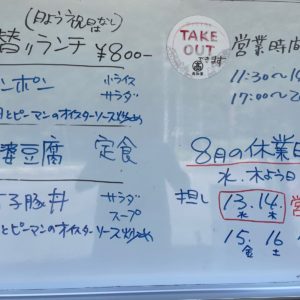 (日よう祝日なし)
替りランチ ¥800-
ンポン 小ライス
サラダ
とピーマンのオイスターソース炒め
婆豆腐 定食
子豚丼 サラダ
スープ
とピーマンのオイスターソース炒め
TAKE
OUT
できます
営業時間
11:30〜1
17:00〜2
8月の休業日
水.木よう日
担し 13. 14.
水 木
15. 16
金 土